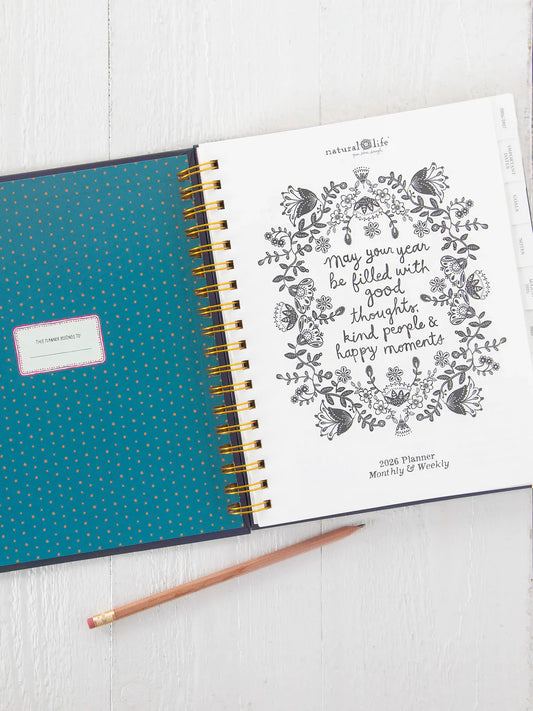 THIS PLANNER BELONGS TO:
natural life
May your year
be filled with
good
thoughts,
kind people &
happy moments
2026 Planner
Monthly & Weekly
IMPORTANT
DATES
GOALS
NOTES